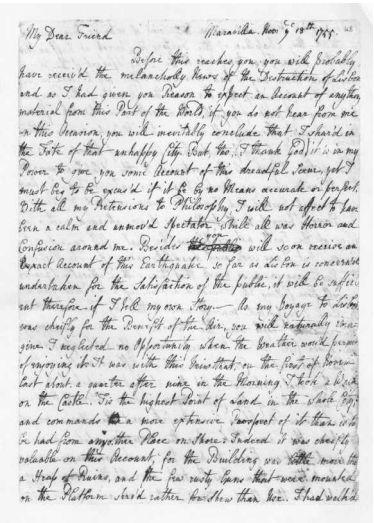 My Dear Friend Maravilla Novr ye 18th 1755.
Before this reaches you, you will probably
have receiv'd the melancholy News of the Destruction of Lisbon
and as I had given you Reason to expect an Account of anything
material from this Part of the World, if you do not hear from me
on this Occasion, you will inevitably conclude that I shar'd in
the Fate of that unhappy City. But, tho', I thank God, it is in my
Power to give you some Account of this dreadful Scene, yet I
must beg to be excus'd if it be by no Means accurate or perfect.
With all my Pretensions to Philosophy, I will not affect to have
been a calm and unmov'd Spectator while all was Horror and
Confusion around me. Besides you will soon receive an
Exact Account of this Earthquake so far as Lisbon is concern'd
undertaken for the Satisfaction of the public, it will be suffici-
ent therefore if I tell my own Story. As my Voyage to Lisbon
was chiefly for the Benefit of the Air, you will naturally ima-
gine I neglected no Opportunity when the Weather would permit
of enjoying it. It was with this View that, on the first of Novem
last about a quarter after nine in the Morning I took a Walk
on the Castle. Tis the highest Point of Land in the whole City
and commands a more extensive Prospect of it than is to
be had from any other Place on Shore: Indeed it was chiefly
valuable on this Account; for the Building was little more than
a Heap of Ruins, and the few rusty Guns that were mounted
on the Platform serv'd rather for Shew than Use. I had walk'd